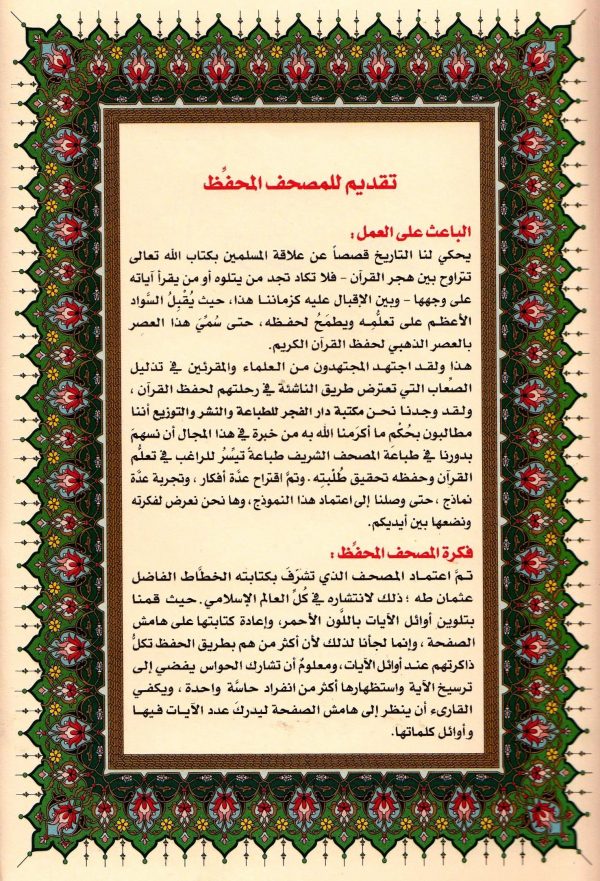 تقديم للمصحف المحفِّظ
الباعث على العمل :
يحكي لنا التاريخ قصصاً عن علاقة المسلمين بكتاب الله تعالى
تتراوح بين هجر القرآن - فلا تكاد تجد من يتلوه أو من يقرأ آياته
على وجهها - وبين الإقبال عليه كزماننا هذا، حيث يُقْبِلُ السَّواد
الأعظم على تعلُّمِه ويطمَحُ لحفظه، حتى سُمِّيَ هذا العصر
بالعصر الذهبي لحفظ القرآن الكريم.
هذا ولقد اجتهد المجتهدون من العلماء والمقرئين في تذليل
الصِّعاب التي تعترض طريق الناشئة في رحلتهم لحفظ القرآن ،
ولقد وجدنا نحن مكتبة دار الفجر للطباعة والنشر والتوزيع أننا
مطالبون بحُكْمِ ما أكرَمنا الله به من خبرة في هذا المجال أن نسهمَ
بدورنا في طباعة المصحف الشريف طباعةً تيسِّرُ للراغب في تعلُّم
القرآن وحفظه تحقيق طُلْبتِه . وتمَّ اقتراح عدَّة أفكار ، وتجربة عدَّة
نماذج ، حتى وصلنا إلى اعتماد هذا النموذج، وها نحن نعرض لفكرته
ونضعها بين أيديكم.
فكرة المصحف المحفِّظ :
تمَّ اعتماد المصحف الذي تشرَّفَ بكتابته الخطَّاط الفاضل
عثمان طه ؛ ذلك لانتشاره في كُلِّ العالم الإسلامي . حيث قمنا
بتلوين أوائل الآيات باللَّون الأحمر، وإعادة كتابتها على هامش
الصفحة ، وإنما لجأنا لذلك لأن أكثر من هم بطريق الحفظ تكلُّ
ذاكرتهم عند أوائل الآيات، ومعلومٌ أن تشارك الحواس يفضي إلى
ترسيخ الآية واستظهارها أكثر من انفراد حاسَّة واحدة ، ويكفي
القارىء أن ينظر إلى هامش الصفحة ليدركَ عدد الآيات فيها
وأوائل كلماتها.